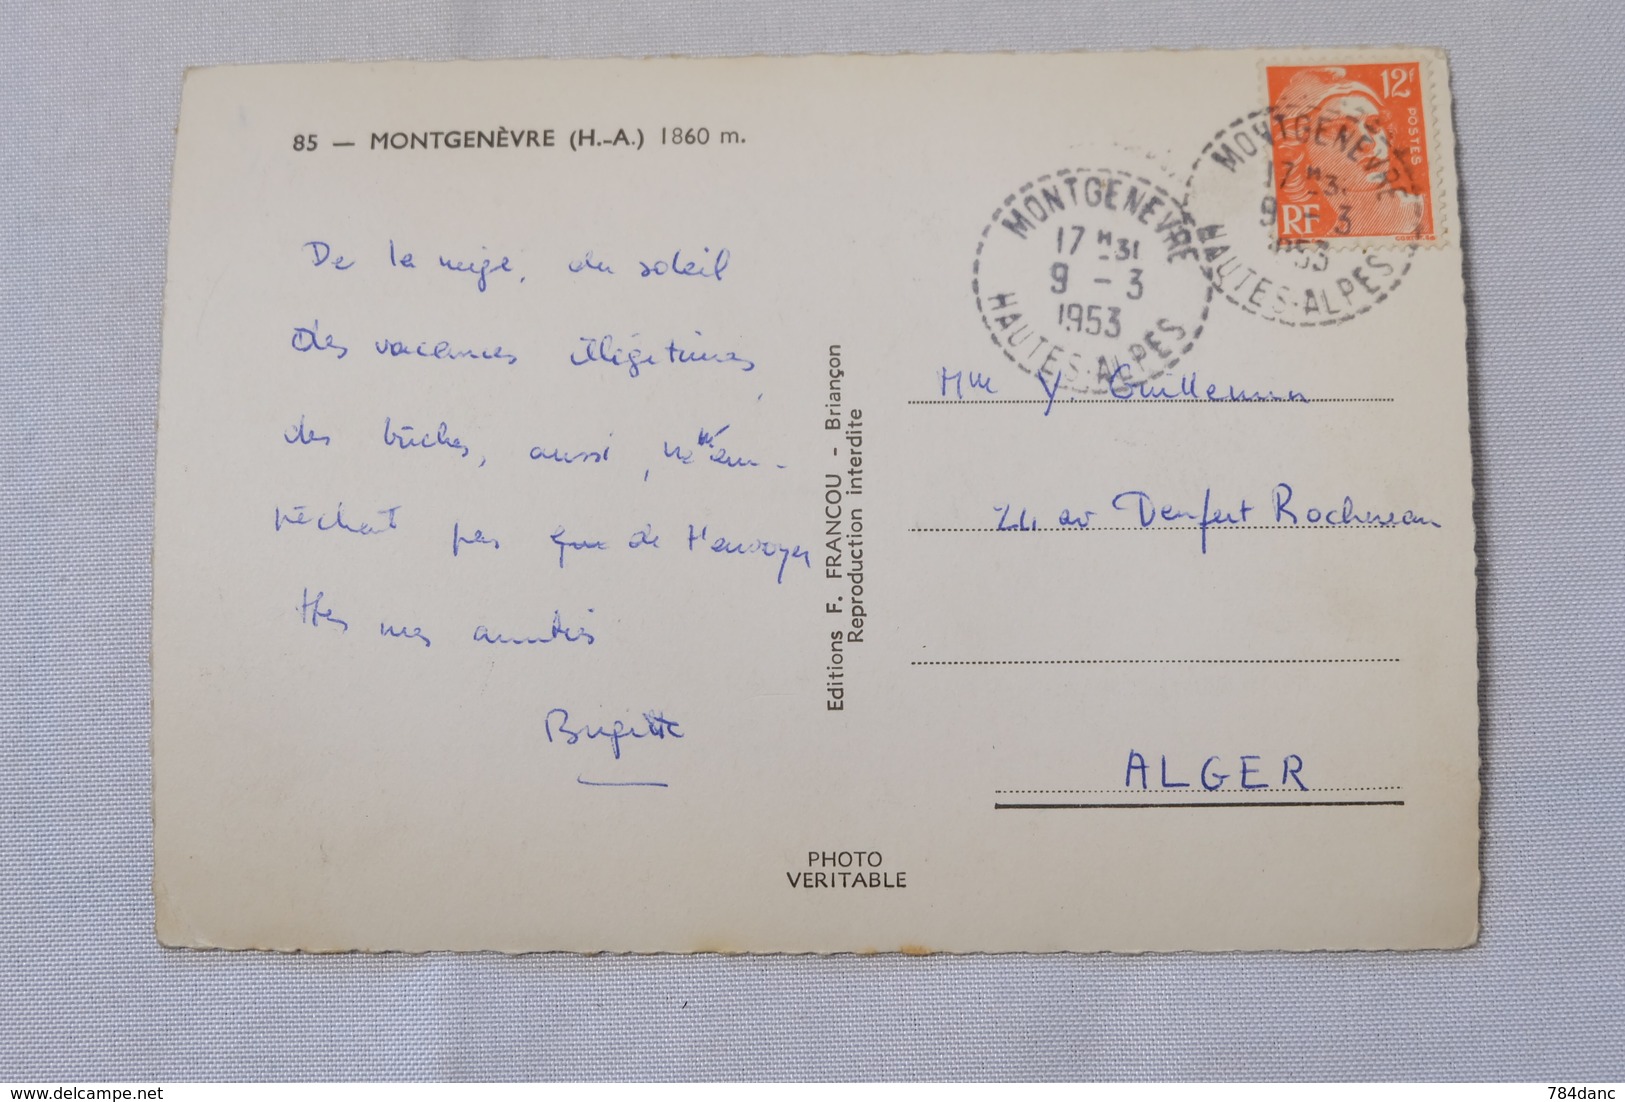 85 — MONTGENÈVRE (H.-A.) 1860 m.
De la neige, du soleil
des vacances illégitimes,
des bûches, aussi, ne m'em-
pêchent pas que de t'envoyer
ttes mes amitiés
Brigitte
Editions F. FRANCOU - Briançon
Reproduction interdite
PHOTO
VERITABLE
12F
POSTES
RF
MONTGENEVRE
17 H 31
9 - 3
1953
HAUTES-ALPES
MONTGENEVRE
17 H 31
9 - 3
1953
HAUTES-ALPES
Mme Y. Guillemin
24 av Denfert Rochereau
ALGER
delcampe.net
784danc